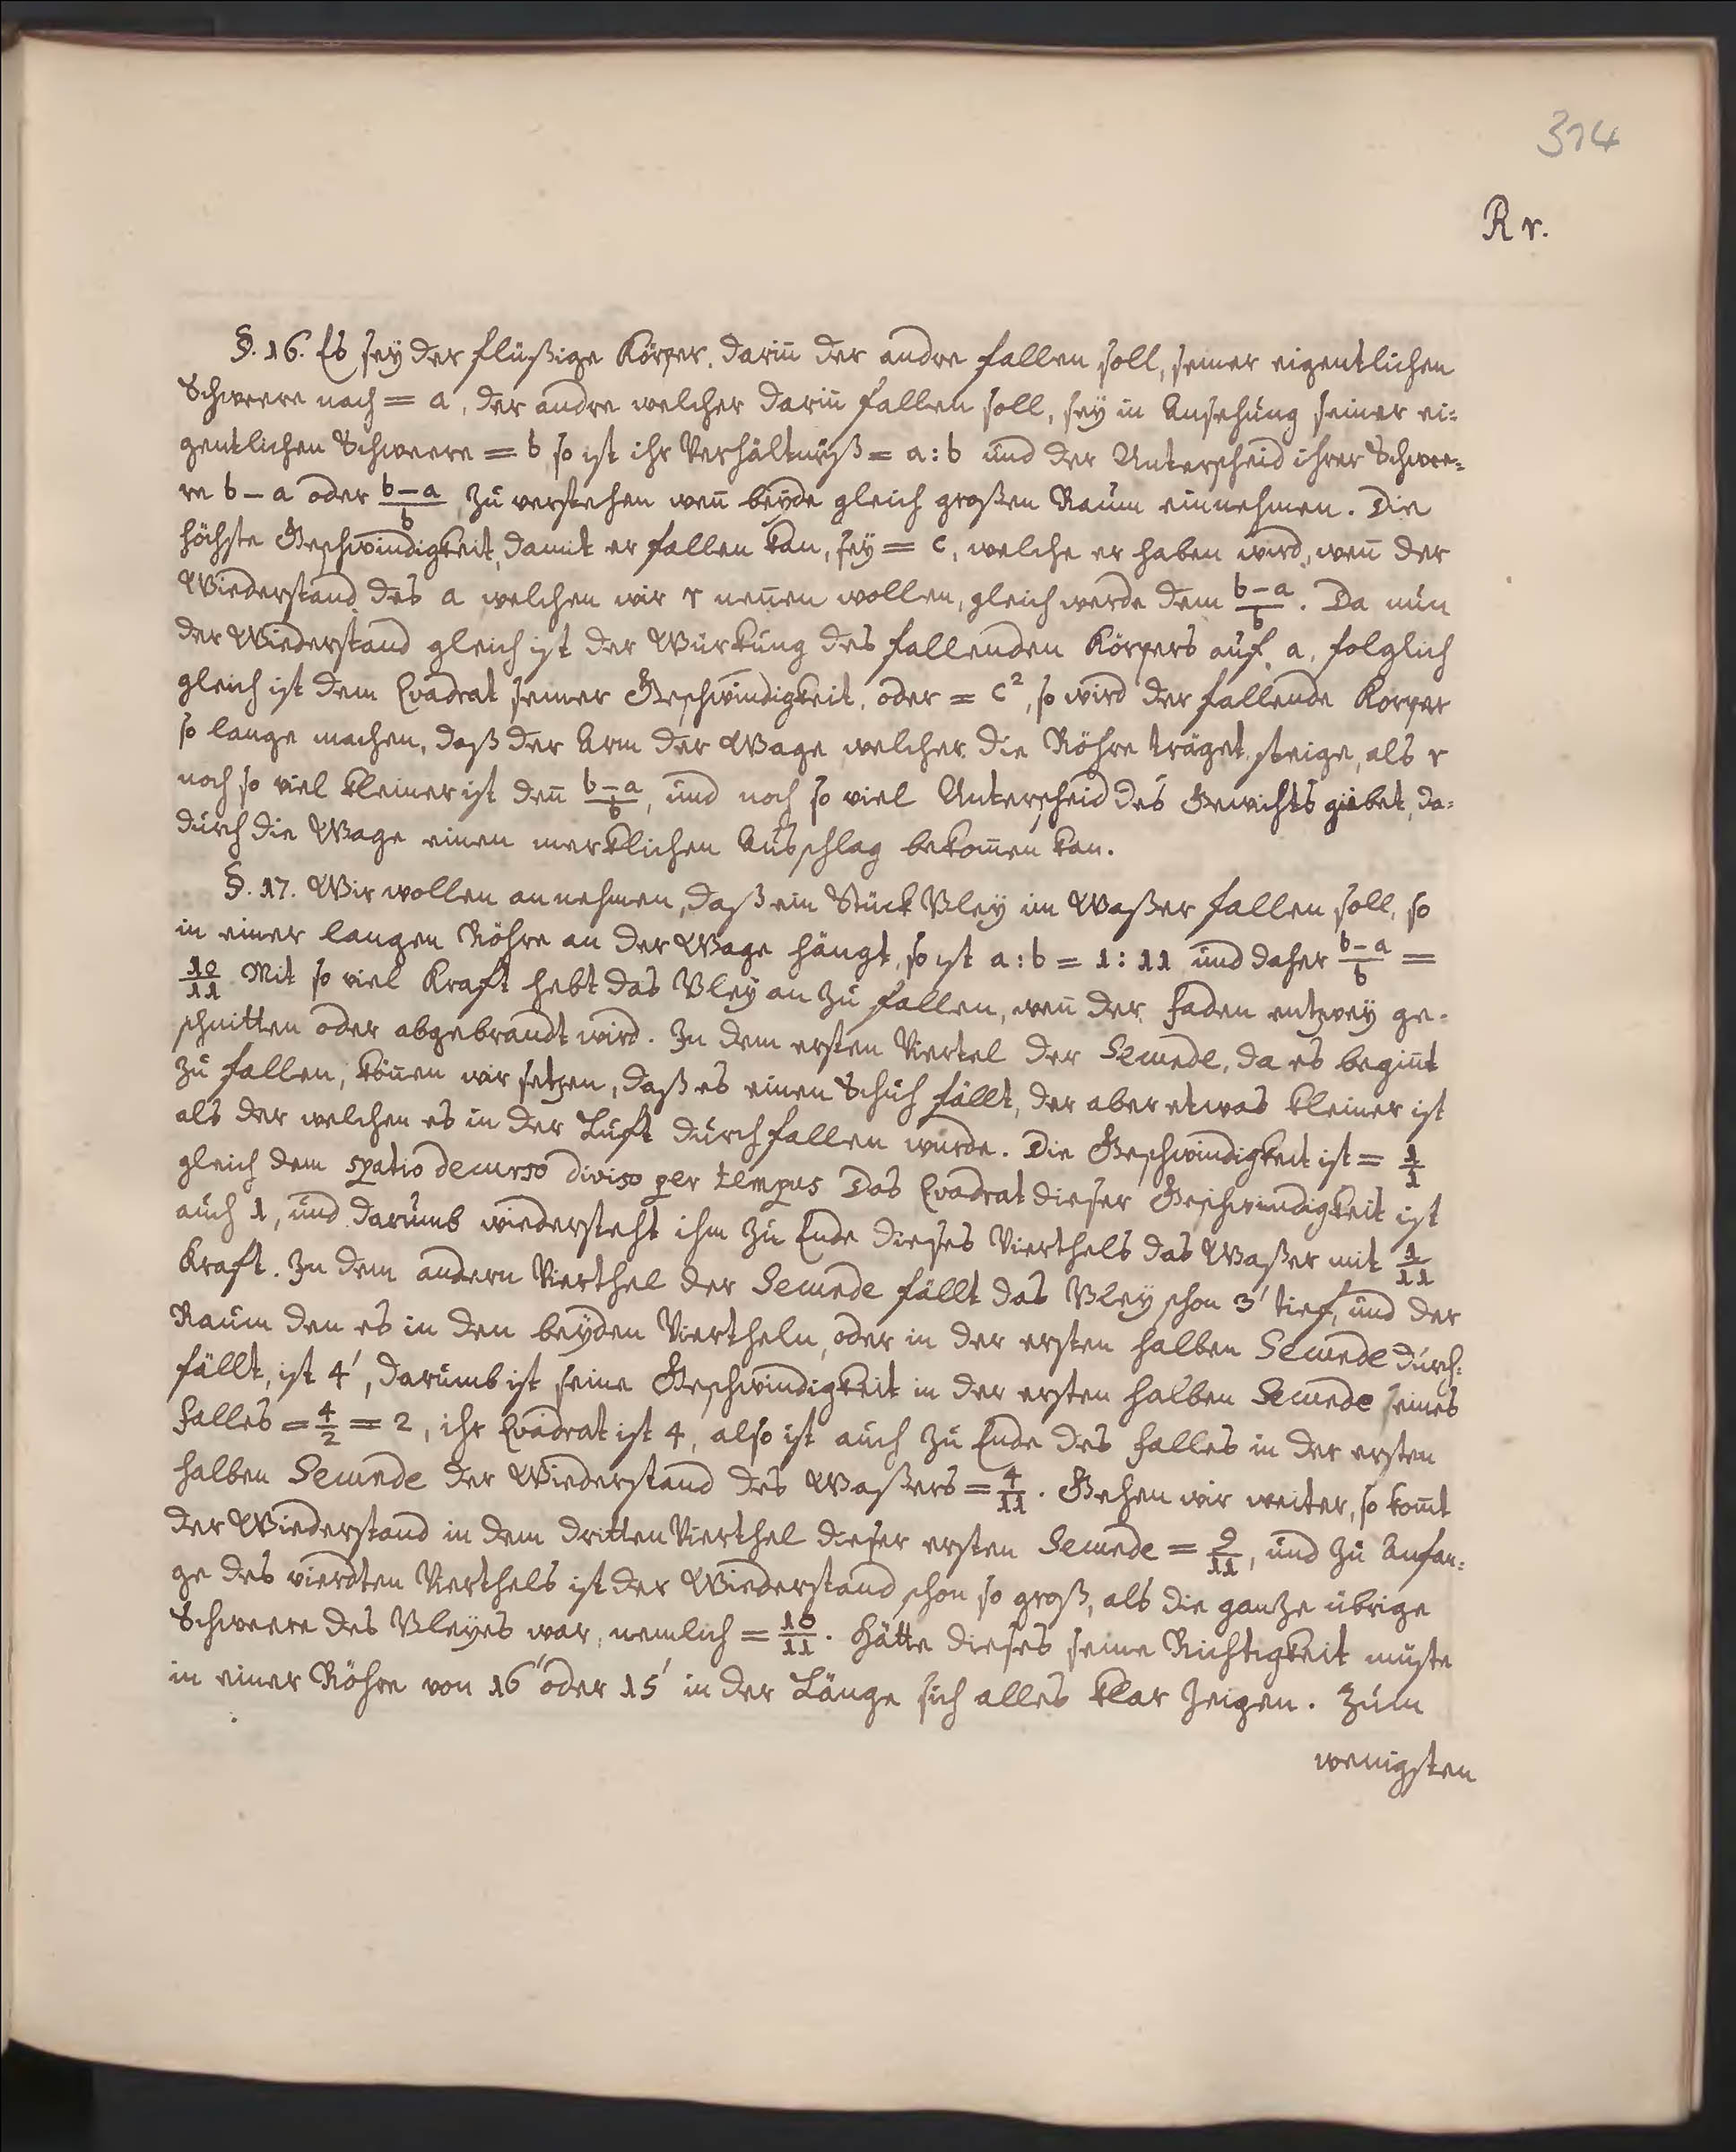 314
Rr.
§. 16. Es seÿ der flüßige Körper, dariñ der andre fallen soll, seiner eigentlichen
Schweere nach = a, der andre welcher dariñ fallen soll, seÿ in Ansehung seiner ei=
gentlichen Schweere = b so ist ihr Verhältnüß = a : b und der Unterscheid ihrer Schwee=
re b – a oder (b–a)/b, zu verstehen weñ beÿde gleich großen Raum einnehmen. Die
höchste Geschwindigkeit, damit er fallen kan, seÿ = c, welche er haben wird, weñ der
Wiederstand des a welchen wir r neñen wollen, gleich werde dem (b–a)/b. Da nun
der Wiederstand gleich ist der Würkung des fallenden Körpers auf a, folglich
gleich ist dem Qvadrat seiner Geschwindigkeit, oder = c², so wird der fallende Korper
so lange machen, daß der Arm der Wage welcher die Röhre träget, steige, als r
noch so viel kleiner ist deñ (b–a)/b, und noch so viel Unterscheid des Gewichts giebet, da=
durch die Wage einen merklichen Ausschlag bekom̄en kan.
§. 17. Wir wollen annehmen, daß ein Stück Bleÿ im Waßer fallen soll, so
in einer langen Röhre an der Wage hängt, so ist a : b = 1 : 11 und daher (b–a)/b =
10/11 Mit so viel Kraft hebt das Bleÿ an zu fallen, weñ der Faden entzweÿ ge=
schnitten oder abgebrandt wird. In dem ersten Viertel der Secunde, da es begiñt
zu fallen, köñen wir setzen, daß es einen Schuh fällt, der aber etwas kleiner ist
als der welchen es in der Luft durchfallen wurde. Die Geschwindigkeit ist = 1/1
gleich dem spatio decurso diviso per tempus Das Qvadrat dieser Geschwindigkeit ist
auch 1, und darumb wiedersteht ihm zu Ende dieses Vierthels das Waßer mit 1/11
Kraft. In dem andern Vierthel der Secunde fällt das Bleÿ schon 3′ tief, und der
Raum den es in den beÿden Viertheln, oder in der ersten halben Secunde durch=
fällt, ist 4′, darumb ist seine Geschwindigkeit in der ersten halben Secunde seines
Falles = 4/2 = 2, ihr Qvadrat ist 4, also ist auch zu Ende des Falles in der ersten
halben Secunde der Wiederstand des Waßers = 4/11. Gehen wir weiter, so kom̄t
der Wiederstand in dem dritten Vierthel dieser ersten Secunde = 9/11, und zu Anfan=
ge des vierdten Vierthels ist der Wiederstand schon so groß, als die gantze übrige
Schweere des Bleÿes war, nemlich = 10/11. Hätte dieses seine Richtigkeit müste
in einer Röhre von 16′ oder 15′ in der Länge sich alles klar zeigen. Zum
wenigsten